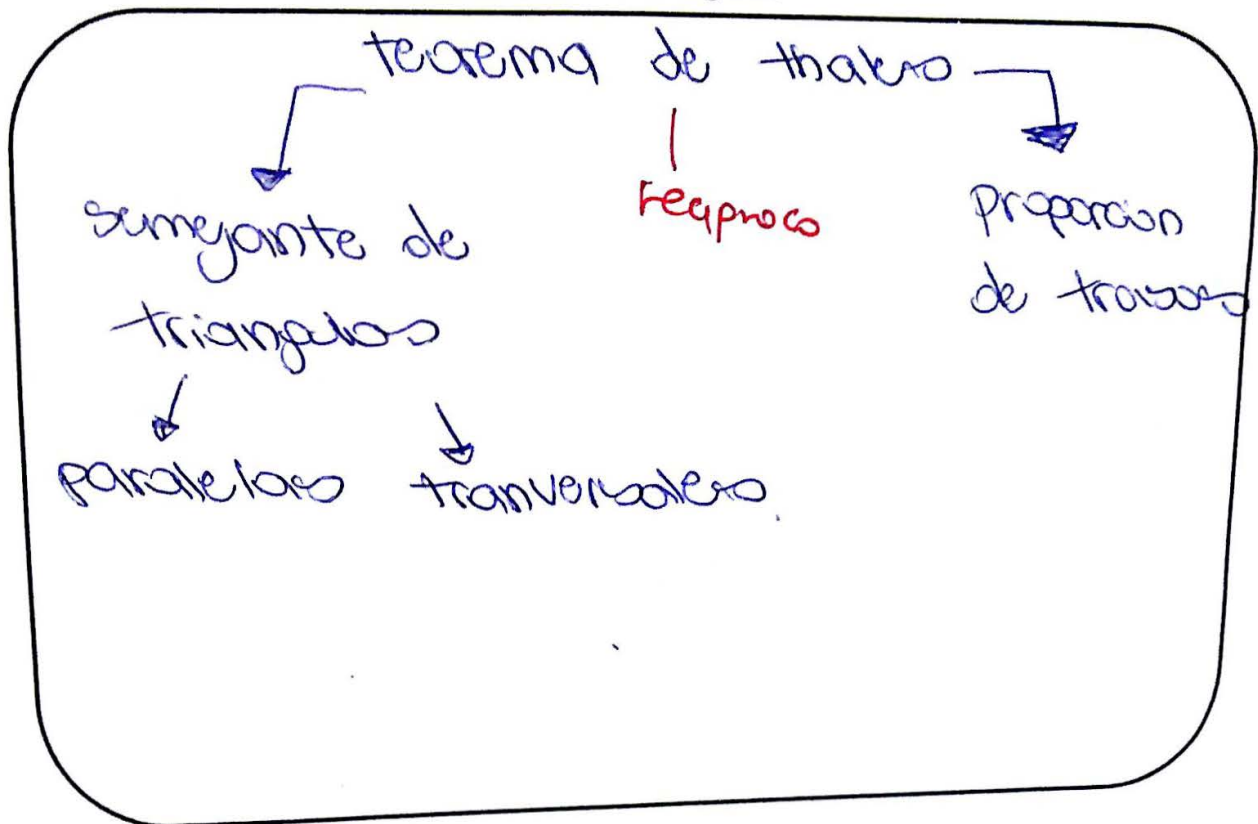 teorema de thales
semejante de
triangulos
reciproco
proporcion
de trazos
paralelas tranversales